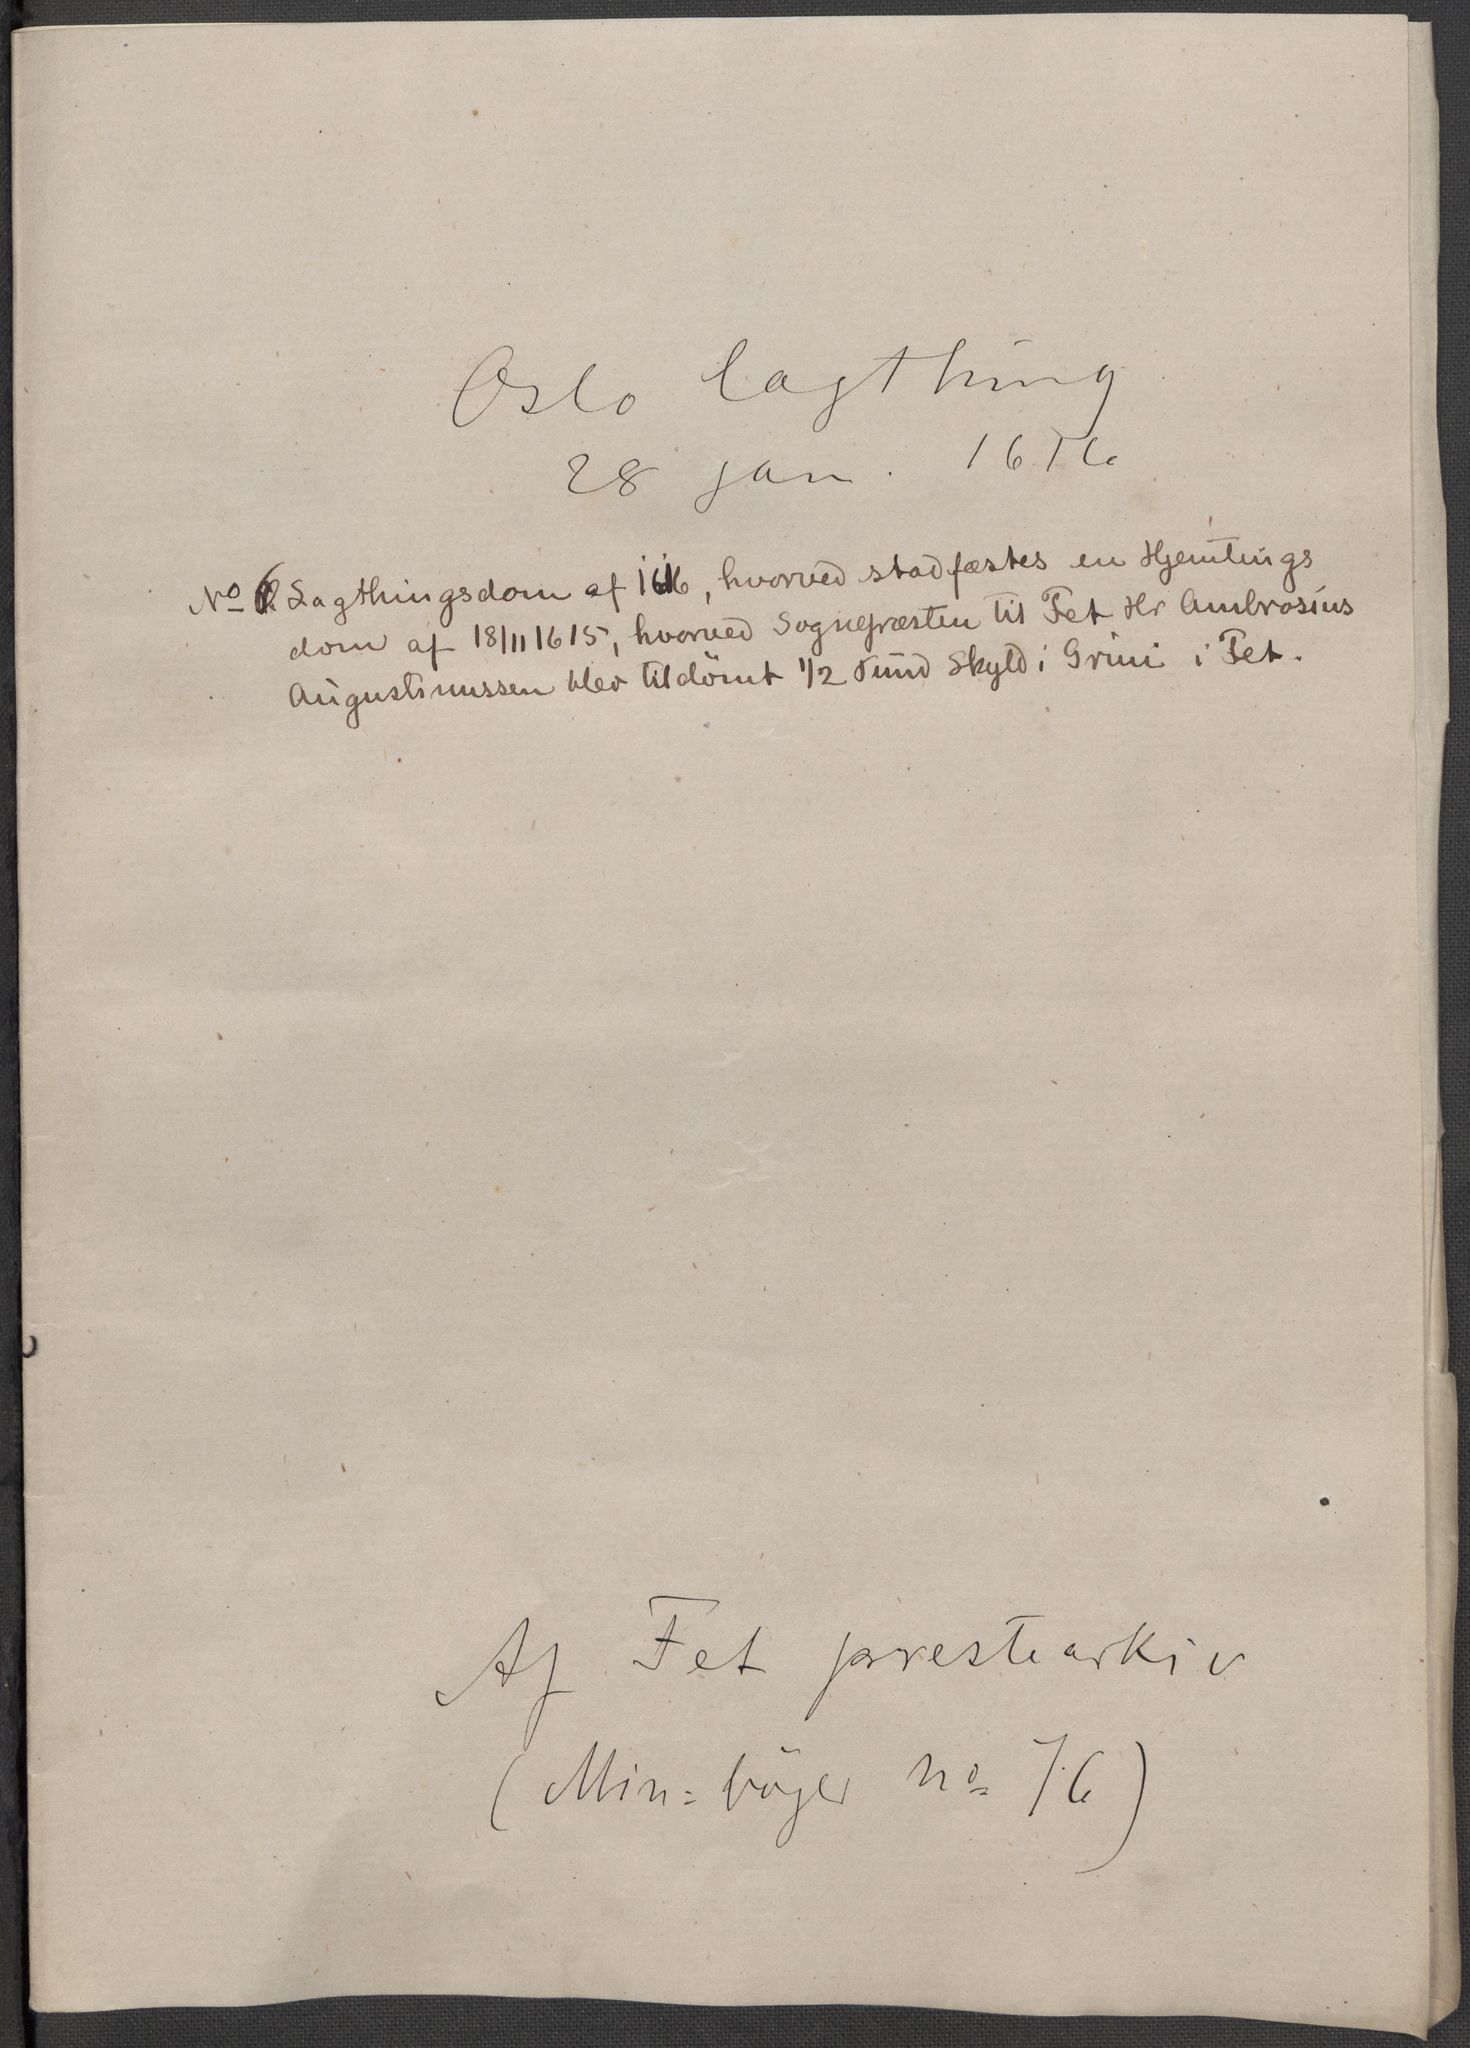 Oslo lagthing
28 jan. 1616
No 6 Lagthingsdom af 1616, hvorved stadfæstes en Hjemtings
dom af 18/11 1615, hvorved Sognepræsten til Fet Hr Ambrosius
Augustinussen blev tildömt 1/2 Pund Skyld i Grini i Fet.
Af Fet prestearkiv
(Min= böger no 76)